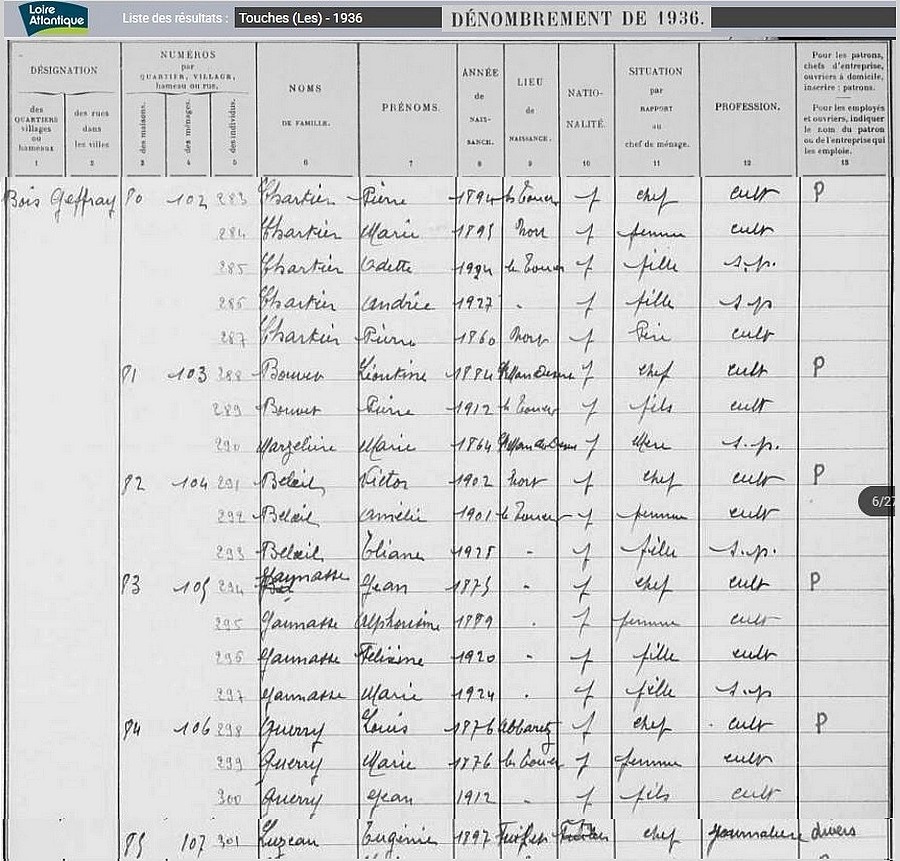 Loire Atlantique
Liste des résultats : Touches (Les) - 1936
DÉNOMBREMENT DE 1936.
DÉSIGNATION
des QUARTIERS villages ou hameaux
1
des rues dans les villes
2
NUMÉROS par QUARTIER, VILLAGE, hameau ou rue.
des maisons.
3
des ménages.
4
des individus.
5
NOMS DE FAMILLE.
6
PRÉNOMS.
7
ANNÉE de NAISSANCE.
8
LIEU de NAISSANCE.
9
NATIONALITÉ.
10
SITUATION par RAPPORT au chef de ménage.
11
PROFESSION.
12
Pour les patrons, chefs d'entreprise, ouvriers à domicile, inscrire : patrons.
Pour les employés et ouvriers, indiquer le nom du patron ou de l'entreprise qui les emploie.
13
Bois Geffray 80 102 283 Chartier Pierre 1894 les Touches f chef cult P
284 Chartier Marie 1895 Nort f femme cult
285 Chartier Odette 1924 les Touches f fille s.p.
286 Chartier Andrée 1927 - f fille s.p
287 Chartier Pierre 1860 Nort f Père cult
81 103 288 Bouvet Léontine 1884 f chef cult P
289 Bouvet Pierre 1912 les Touches f fils cult
290 Marzelière Marie 1864 f Mère s.p.
82 104 291 Beloeil Victor 1902 Nort f chef cult P
292 Beloeil Amélie 1901 les Touches f femme cult
293 Beloeil Eliane 1928 - f fille s.p.
83 105 294 Gaumasse Jean 1875 - f chef cult P
295 Gaumasse Alphonsine 1889 . f femme cult
296 Gaumasse 1920 - f fille cult
297 Gaumasse Marie 1924 . f fille s.p
84 106 298 Guerry Louis 1876 Abbaretz f chef cult P
299 Guerry Marie 1876 les Touches f femme cult
300 Guerry Jean 1912 - f fils cult
85 107 301 Luzeau Eugénie 1897 chef journalière divers
6/27